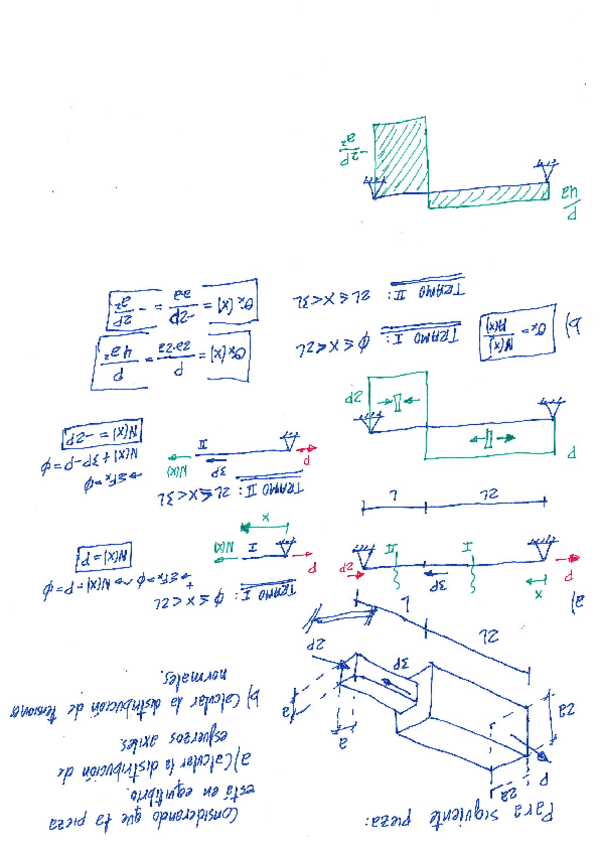 Para siguiente pieza:
Considerando que la pieza
está en equilibrio.
a) Calcular la distribución de
esfuerzos axiles.
b) Calcular la distribución de tensiones
normales.
2a
2a
P
3P
2P
a
a
2L
L
a)
x
P
I
3P
II
2P
2L
L
TRAMO I: ϕ ≤ x < 2L
P
I
N(x)
x
→+ ΣFx = ϕ ⇝ N(x) - P = ϕ
N(x) = P
TRAMO II: 2L ≤ x < 3L
P
3P
II
N(x)
→ ΣFx = ϕ
N(x) + 3P - P = ϕ
N(x) = -2P
P
2P
b)
σx = N(x) / A(x)
TRAMO I: ϕ ≤ x < 2L
σx(x) = P / 2a·2a = P / 4a²
TRAMO II: 2L ≤ x < 3L
σx(x) = -2P / aa = - 2P / a²
P / 4a
-2P / a²